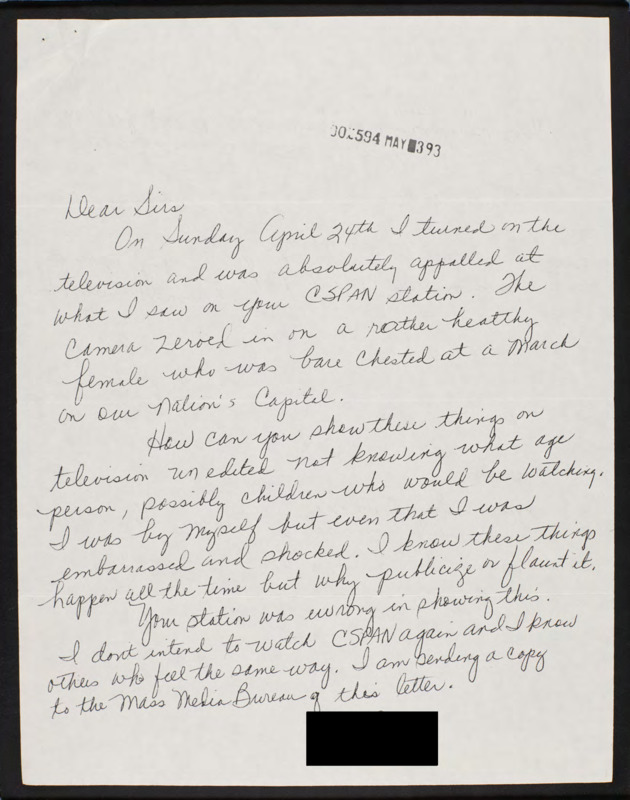 MAY 393
Dear Sirs
On Sunday April 24th I turned on the
television and was absolutely appalled at
what I saw on your CSPAN station. The
Camera zeroed in on a rather healthy
female who was bare chested at a March
on our Nation's Capitel.
How can you show these things on
television unedited not knowing what age
person, possibly children who would be watching.
I was by myself but even that I was
embarrassed and shocked. I know these things
happen all the time but why publicize or flaunt it.
Your station was wrong in showing this.
I dont intend to watch CSPAN again and I know
others who feel the same way. I am sending a copy
to the Mass Media Bureau of this letter.